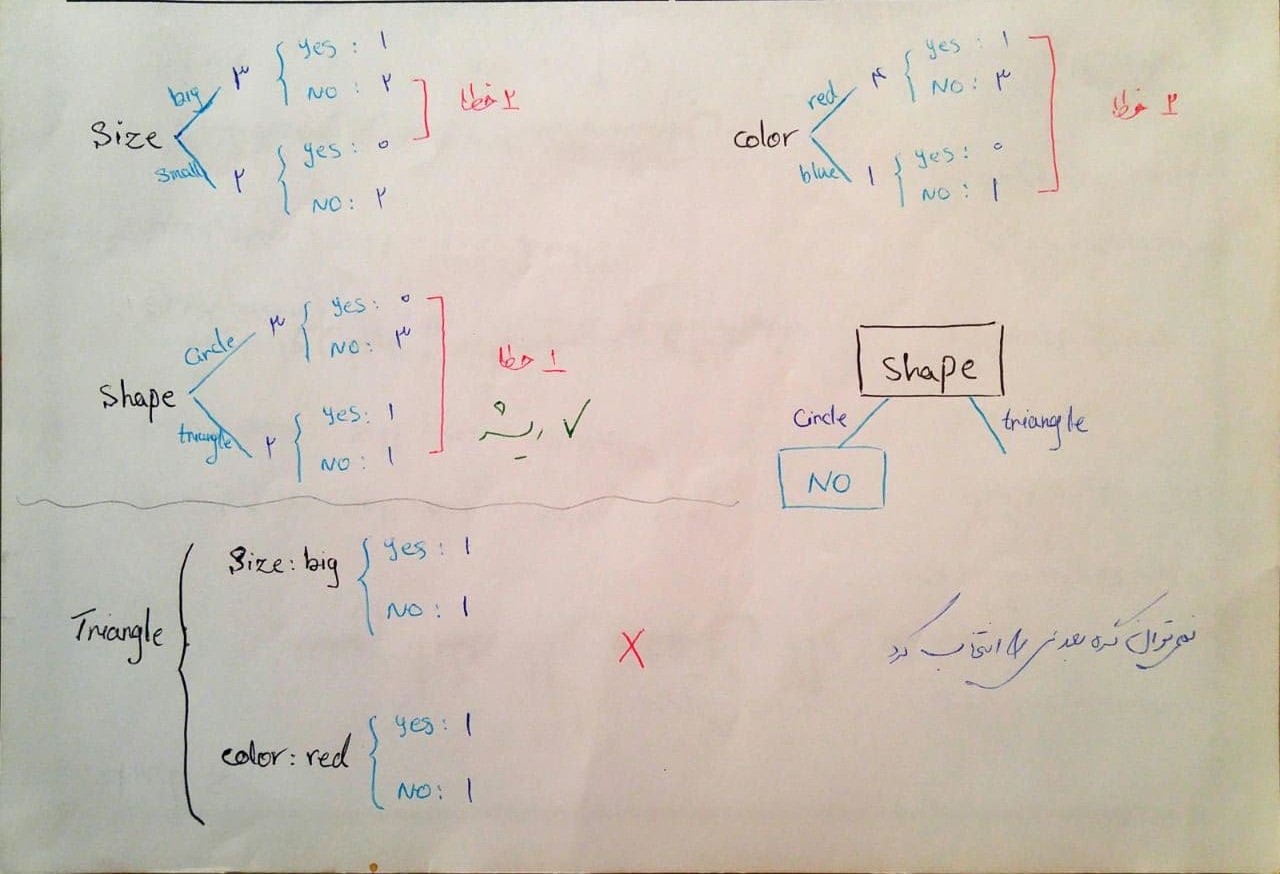 Size
big ۳ yes : ۱
NO : ۲
small ۲ yes : ۰
NO : ۲
۲ خطا
color
red ۴ yes : ۱
NO : ۳
blue ۱ yes : ۰
NO : ۱
۲ خطا
Shape
Circle ۳ yes : ۰
NO : ۳
triangle ۲ yes : ۱
NO : ۱
۱ خطا
ریشه ✓
Shape
Circle triangle
NO
Triangle
Size : big yes : ۱
NO : ۱
color : red yes : ۱
NO : ۱
X
نمی‌توان گره بعدی را انتخاب کرد